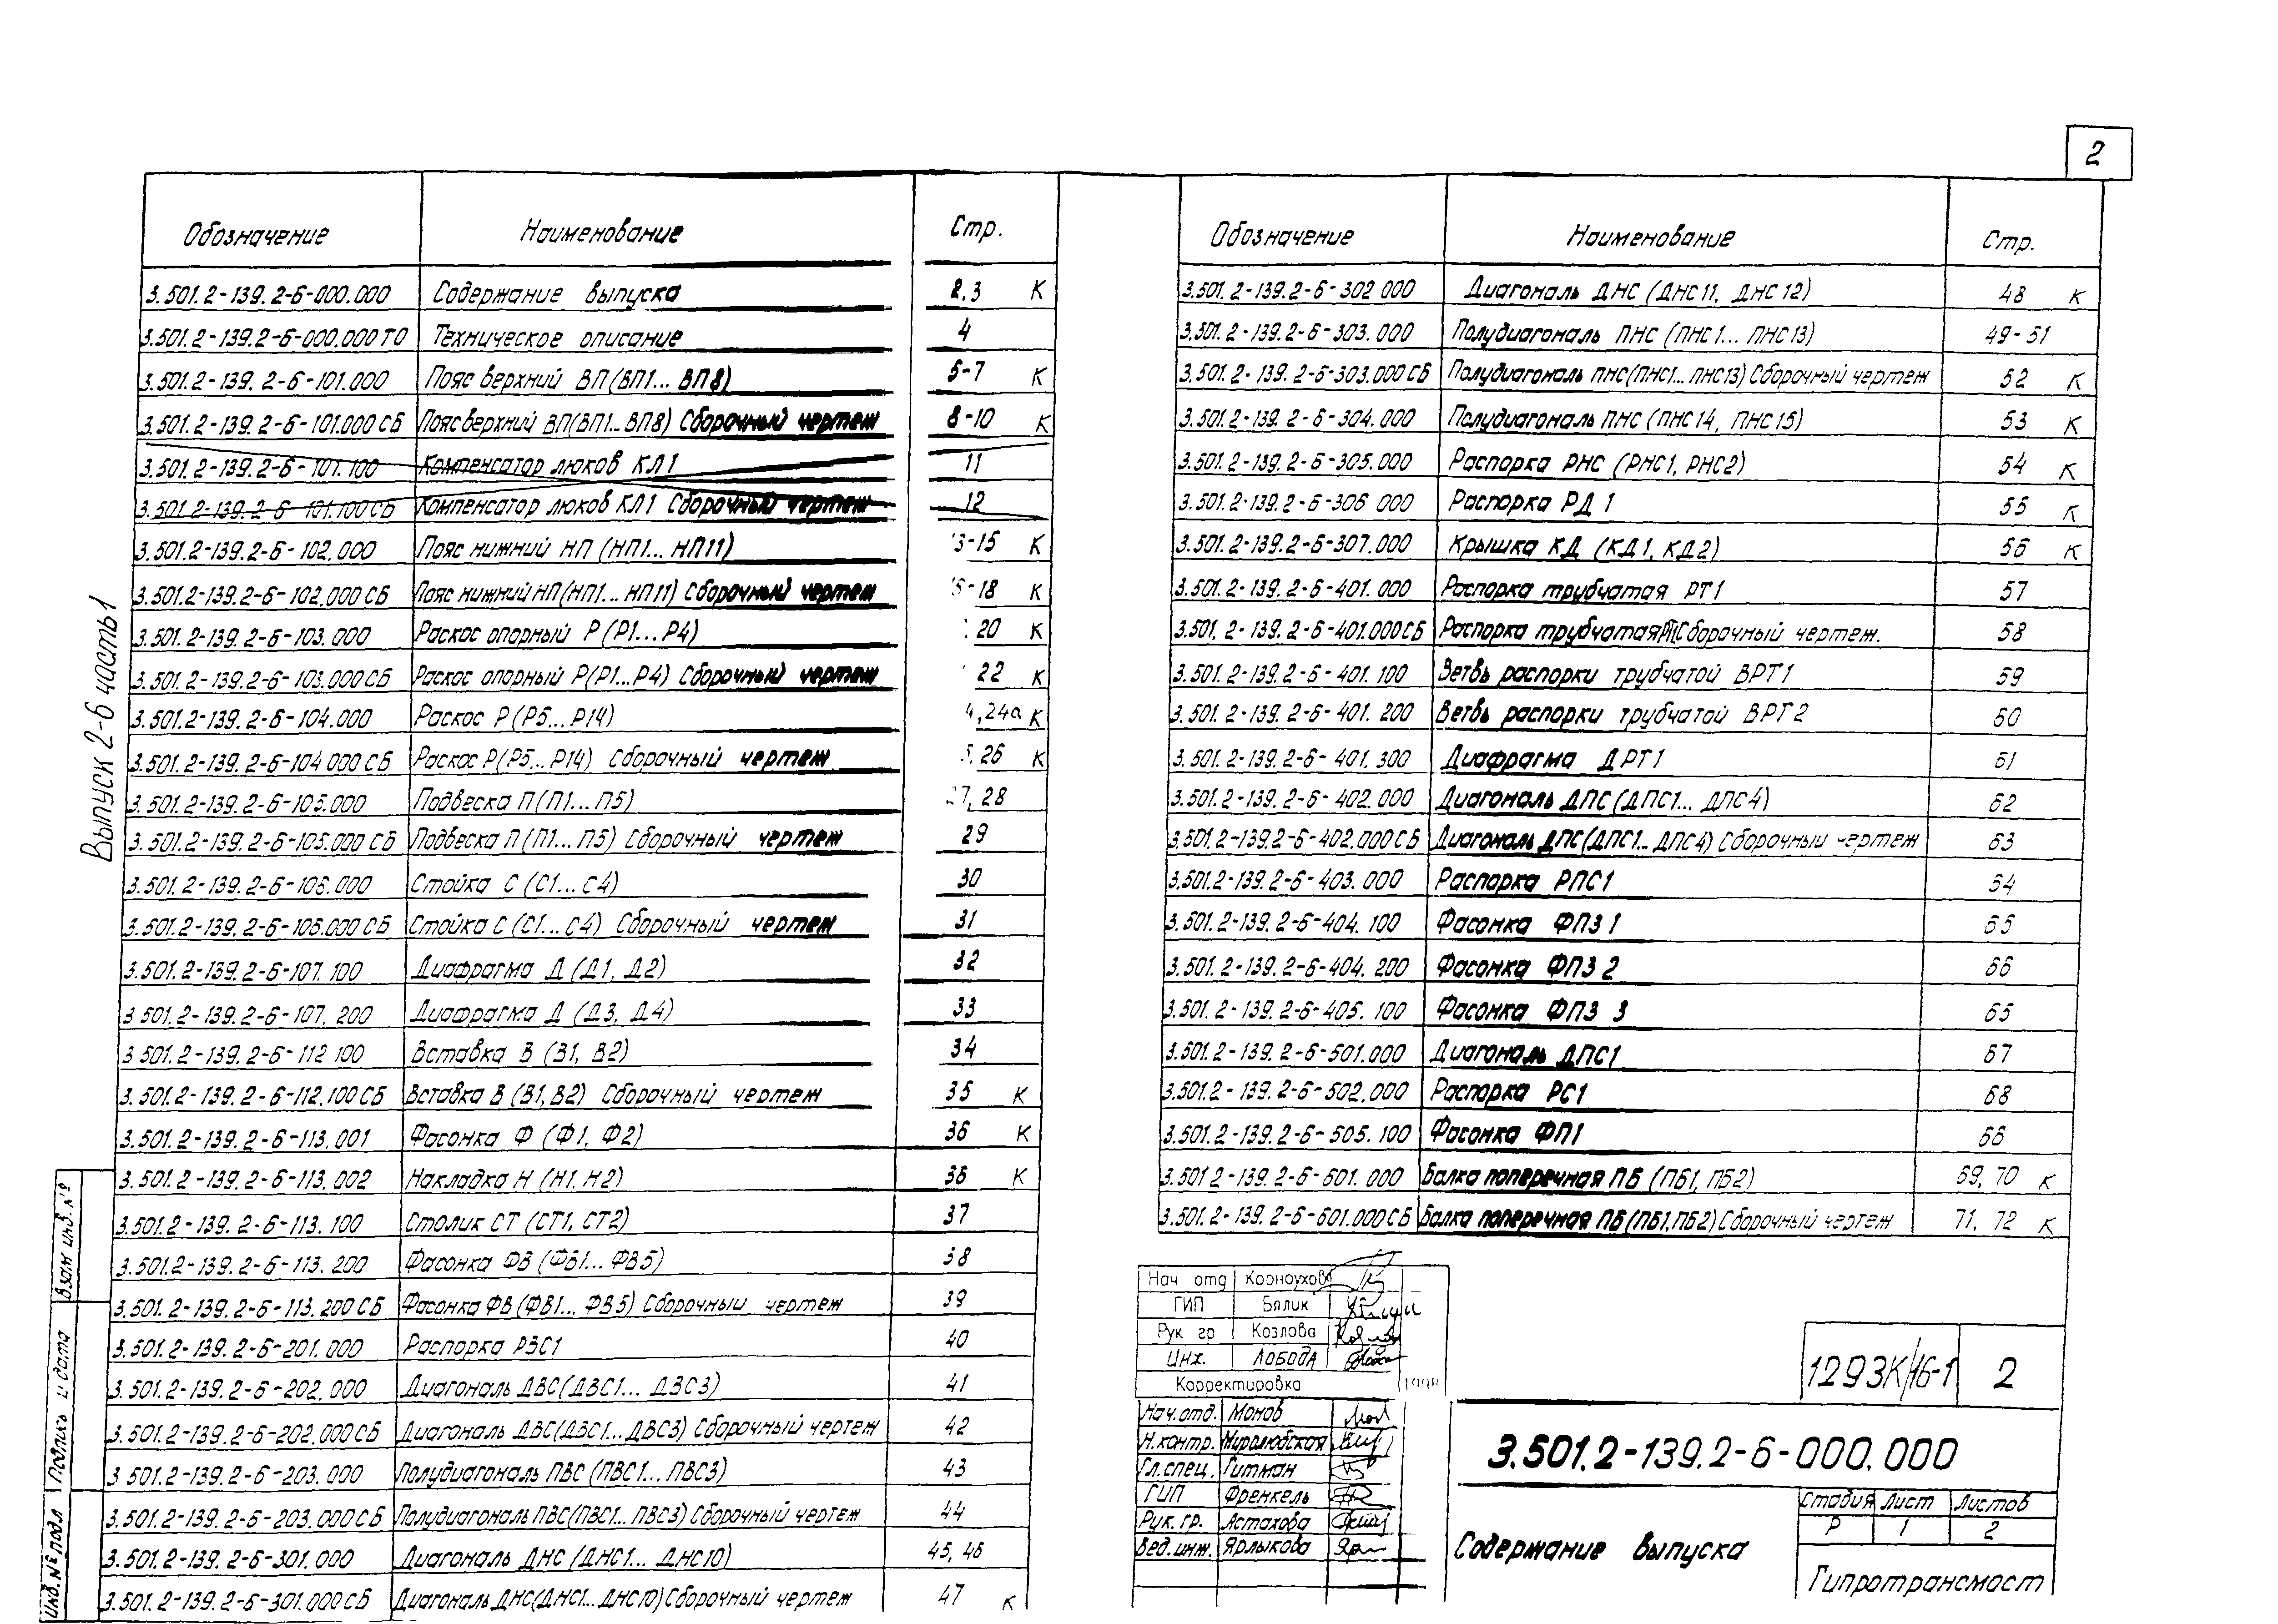 2
Обозначение Наименование Стр.
3.501.2-139.2-6-000.000 Содержание выпуска 2,3 К
3.501.2-139.2-6-000.000 ТО Техническое описание 4
3.501.2-139.2-6-101.000 Пояс верхний ВП (ВП1... ВП8) 5-7 К
3.501.2-139.2-6-101.000 СБ Пояс верхний ВП (ВП1... ВП8) Сборочный чертеж 8-10 К
3.501.2-139.2-6-101.100 Компенсатор люков КЛ1 11
3.501.2-139.2-6-101.100 СБ Компенсатор люков КЛ1 Сборочный чертеж 12
3.501.2-139.2-6-102.000 Пояс нижний НП (НП1... НП11) 3-15 К
3.501.2-139.2-6-102.000 СБ Пояс нижний НП (НП1... НП11) Сборочный чертеж -18 К
3.501.2-139.2-6-103.000 Раскос опорный Р (Р1... Р4) 20 К
3.501.2-139.2-6-103.000 СБ Раскос опорный Р (Р1... Р4) Сборочный чертеж 22 К
3.501.2-139.2-6-104.000 Раскос Р (Р5... Р14) ,24а К
3.501.2-139.2-6-104 000 СБ Раскос Р (Р5... Р14) Сборочный чертеж ,26 К
3.501.2-139.2-6-105.000 Подвеска П (П1... П5) 27, 28
3.501.2-139.2-6-105.000 СБ Подвеска П (П1... П5) Сборочный чертеж 29
3.501.2-139.2-6-106.000 Стойка С (С1... С4) 30
3.501.2-139.2-6-106.000 СБ Стойка С (С1... С4) Сборочный чертеж 31
3.501.2-139.2-6-107.100 Диафрагма Д (Д1, Д2) 32
3.501.2-139.2-6-107.200 Диафрагма Д (Д3, Д4) 33
3 501.2-139.2-6-112 100 Вставка В (В1, В2) 34
3.501.2-139.2-6-112.100 СБ Вставка В (В1, В2) Сборочный чертеж 35 К
3.501.2-139.2-6-113.001 Фасонка Ф (Ф1, Ф2) 36 К
3.501.2-139.2-6-113.002 Накладка Н (Н1, Н2) 36 К
3.501.2-139.2-6-113.100 Столик СТ (СТ1, СТ2) 37
3.501.2-139.2-6-113.200 Фасонка ФВ (ФВ1... ФВ5) 38
3.501.2-139.2-6-113.200 СБ Фасонка ФВ (ФВ1... ФВ5) Сборочный чертеж 39
3.501.2-139.2-6-201.000 Распорка РВС1 40
3.501.2-139.2-6-202.000 Диагональ ДВС (ДВС1... ДВС3) 41
3.501.2-139.2-6-202.000 СБ Диагональ ДВС (ДВС1... ДВС3) Сборочный чертеж 42
3 501.2-139.2-6-203.000 Полудиагональ ПВС (ПВС1... ПВС3) 43
3.501.2-139.2-6-203.000 СБ Полудиагональ ПВС (ПВС1... ПВС3) Сборочный чертеж 44
3.501.2-139.2-6-301.000 Диагональ ДНС (ДНС1... ДНС10) 45, 46
3.501.2-139.2-6-301.000 СБ Диагональ ДНС (ДНС1... ДНС10) Сборочный чертеж 47 К
Обозначение Наименование Стр.
3.501.2-139.2-6-302 000 Диагональ ДНС (ДНС11, ДНС12) 48 К
3.501.2-139.2-6-303.000 Полудиагональ ПНС (ПНС1... ПНС13) 49-51
3.501.2-139.2-6-303.000 СБ Полудиагональ ПНС (ПНС1... ПНС13) Сборочный чертеж 52 К
3.501.2-139.2-6-304.000 Полудиагональ ПНС (ПНС14, ПНС15) 53 К
3.501.2-139.2-6-305.000 Распорка РНС (РНС1, РНС2) 54 К
3.501.2-139.2-6-306 000 Распорка РД 1 55 К
3.501.2-139.2-6-307.000 Крышка КД (КД1, КД2) 56 К
3.501.2-139.2-6-401.000 Распорка трубчатая РТ1 57
3.501.2-139.2-6-401.000 СБ Распорка трубчатая РТ1 Сборочный чертеж. 58
3.501.2-139.2-6-401.100 Ветвь распорки трубчатой ВРТ1 59
3.501.2-139.2-6-401.200 Ветвь распорки трубчатой ВРТ2 60
3.501.2-139.2-6-401.300 Диафрагма ДРТ1 61
3.501.2-139.2-6-402.000 Диагональ ДПС (ДПС1... ДПС4) 62
3.501.2-139.2-6-402.000 СБ Диагональ ДПС (ДПС1... ДПС4) Сборочный чертеж 63
3.501.2-139.2-6-403.000 Распорка РПС1 64
3.501.2-139.2-6-404.100 Фасонка ФПЗ 1 65
3.501.2-139.2-6-404.200 Фасонка ФПЗ 2 66
3.501.2-139.2-6-405.100 Фасонка ФПЗ 3 65
3.501.2-139.2-6-501.000 Диагональ ДПС1 67
3.501.2-139.2-6-502.000 Распорка РС1 68
3.501.2-139.2-6-505.100 Фасонка ФП1 66
3.501 2-139.2-6-601.000 Балка поперечная ПБ (ПБ1, ПБ2) 69, 70 К
3.501.2-139.2-6-601.000 СБ Балка поперечная ПБ (ПБ1, ПБ2) Сборочный чертеж 71, 72 К
Выпуск 2-6 часть 1
Взам инв. №
Подпись и дата
Инв. № подл
Нач отд Корноухов
ГИП Бялик
Рук гр Козлова
Инж. Лобода
Корректировка
Нач. отд. Монов
Н.контр. Миролюбская
Гл.спец. Гитман
ГИП Френкель
Рук. гр. Астахова
Вед.инж. Ярлыкова
1293К/16-1 2
3.501.2-139.2-6-000.000
Содержание выпуска
Стадия Лист Листов
Р 1 2
Гипротрансмост